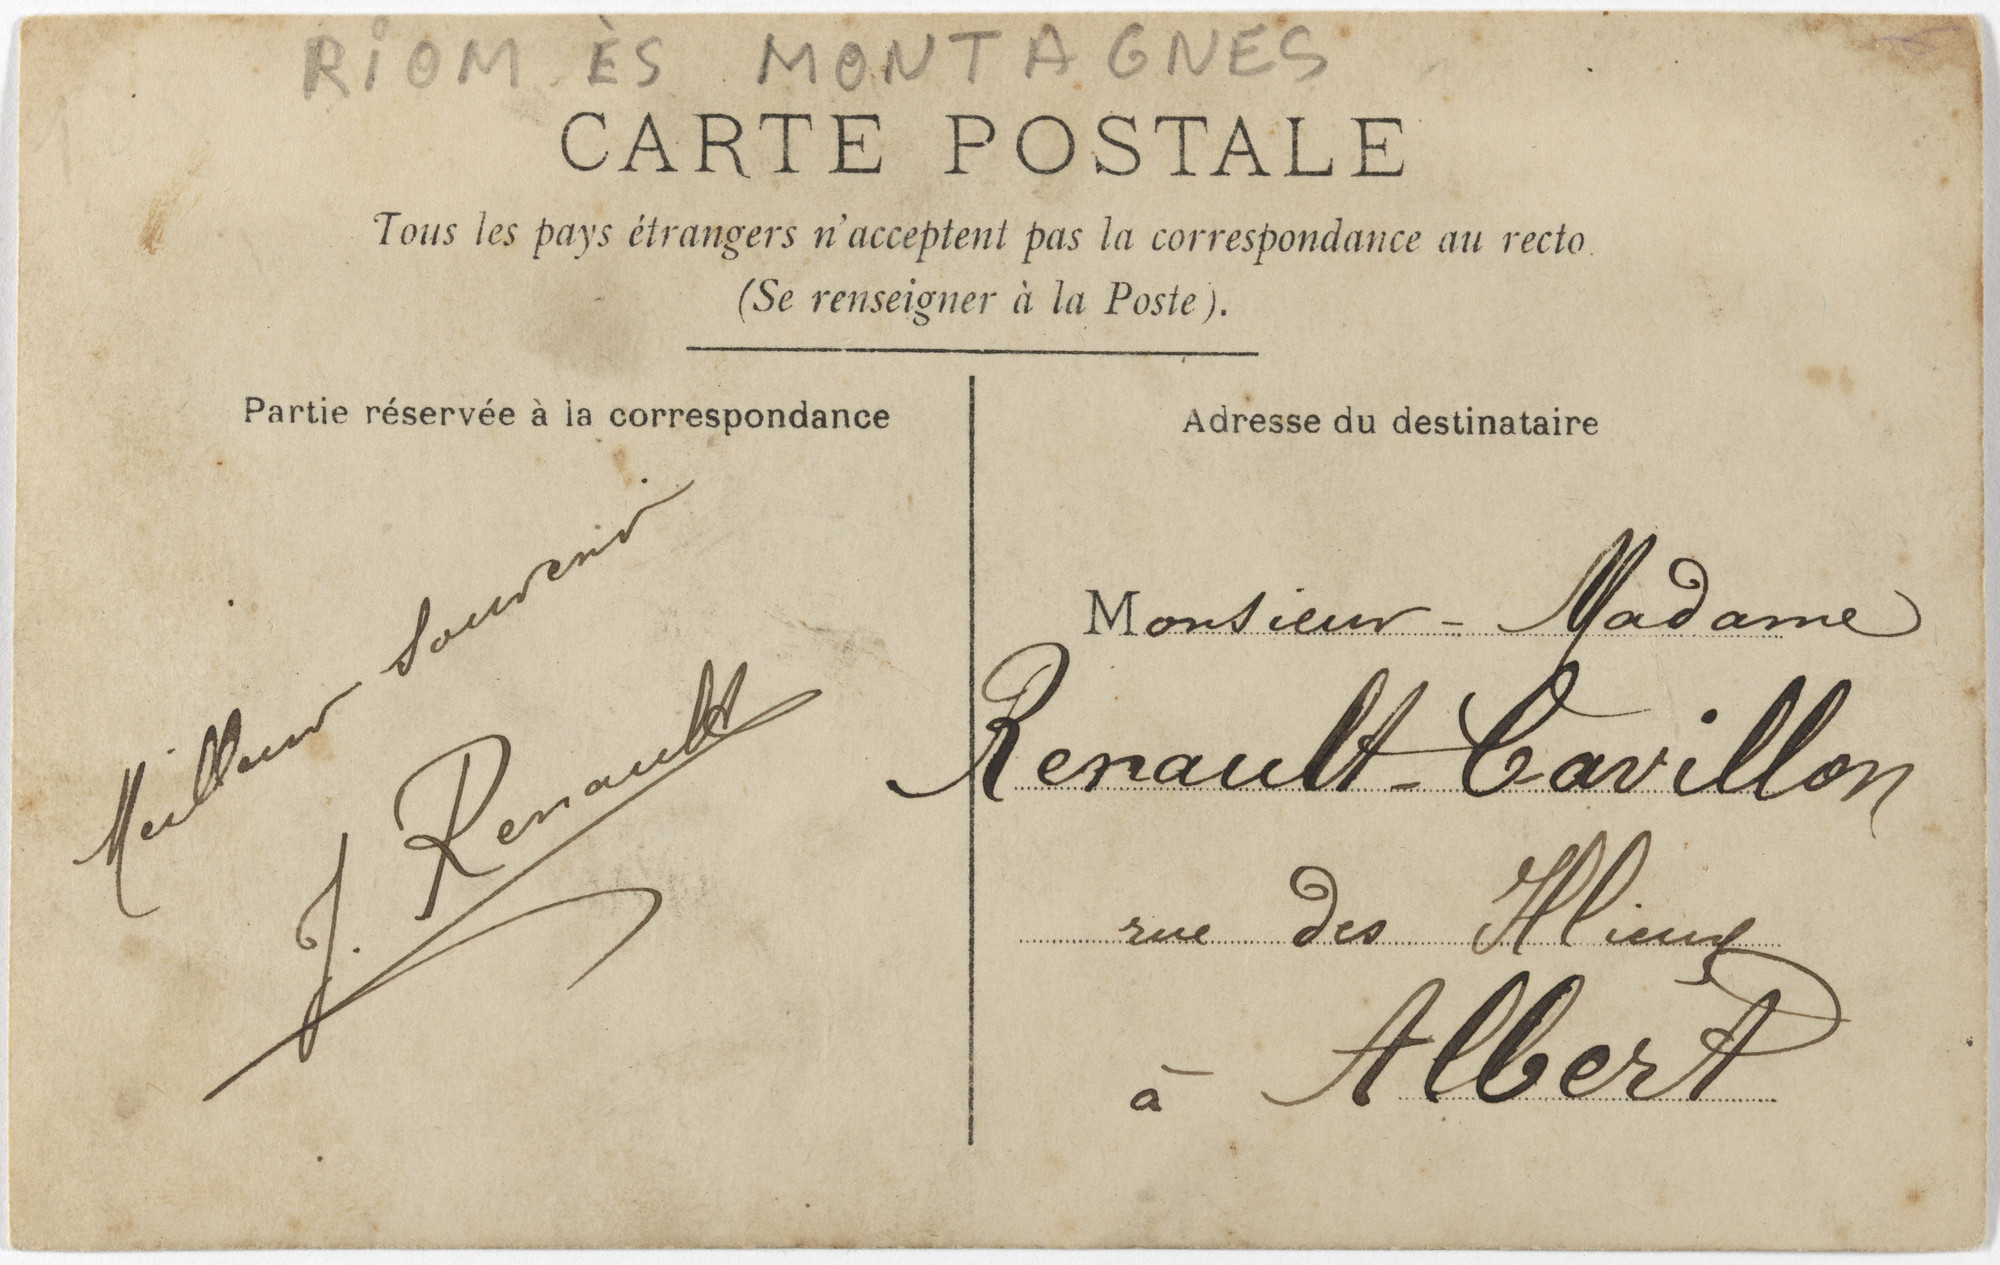 RIOM ÈS MONTAGNES
CARTE POSTALE
Tous les pays étrangers n'acceptent pas la correspondance au recto
(Se renseigner à la Poste).
Partie réservée à la correspondance
Meilleur souvenir
J. Renault
Adresse du destinataire
Monsieur - Madame
Renault-Cavillon
rue des
à Albert